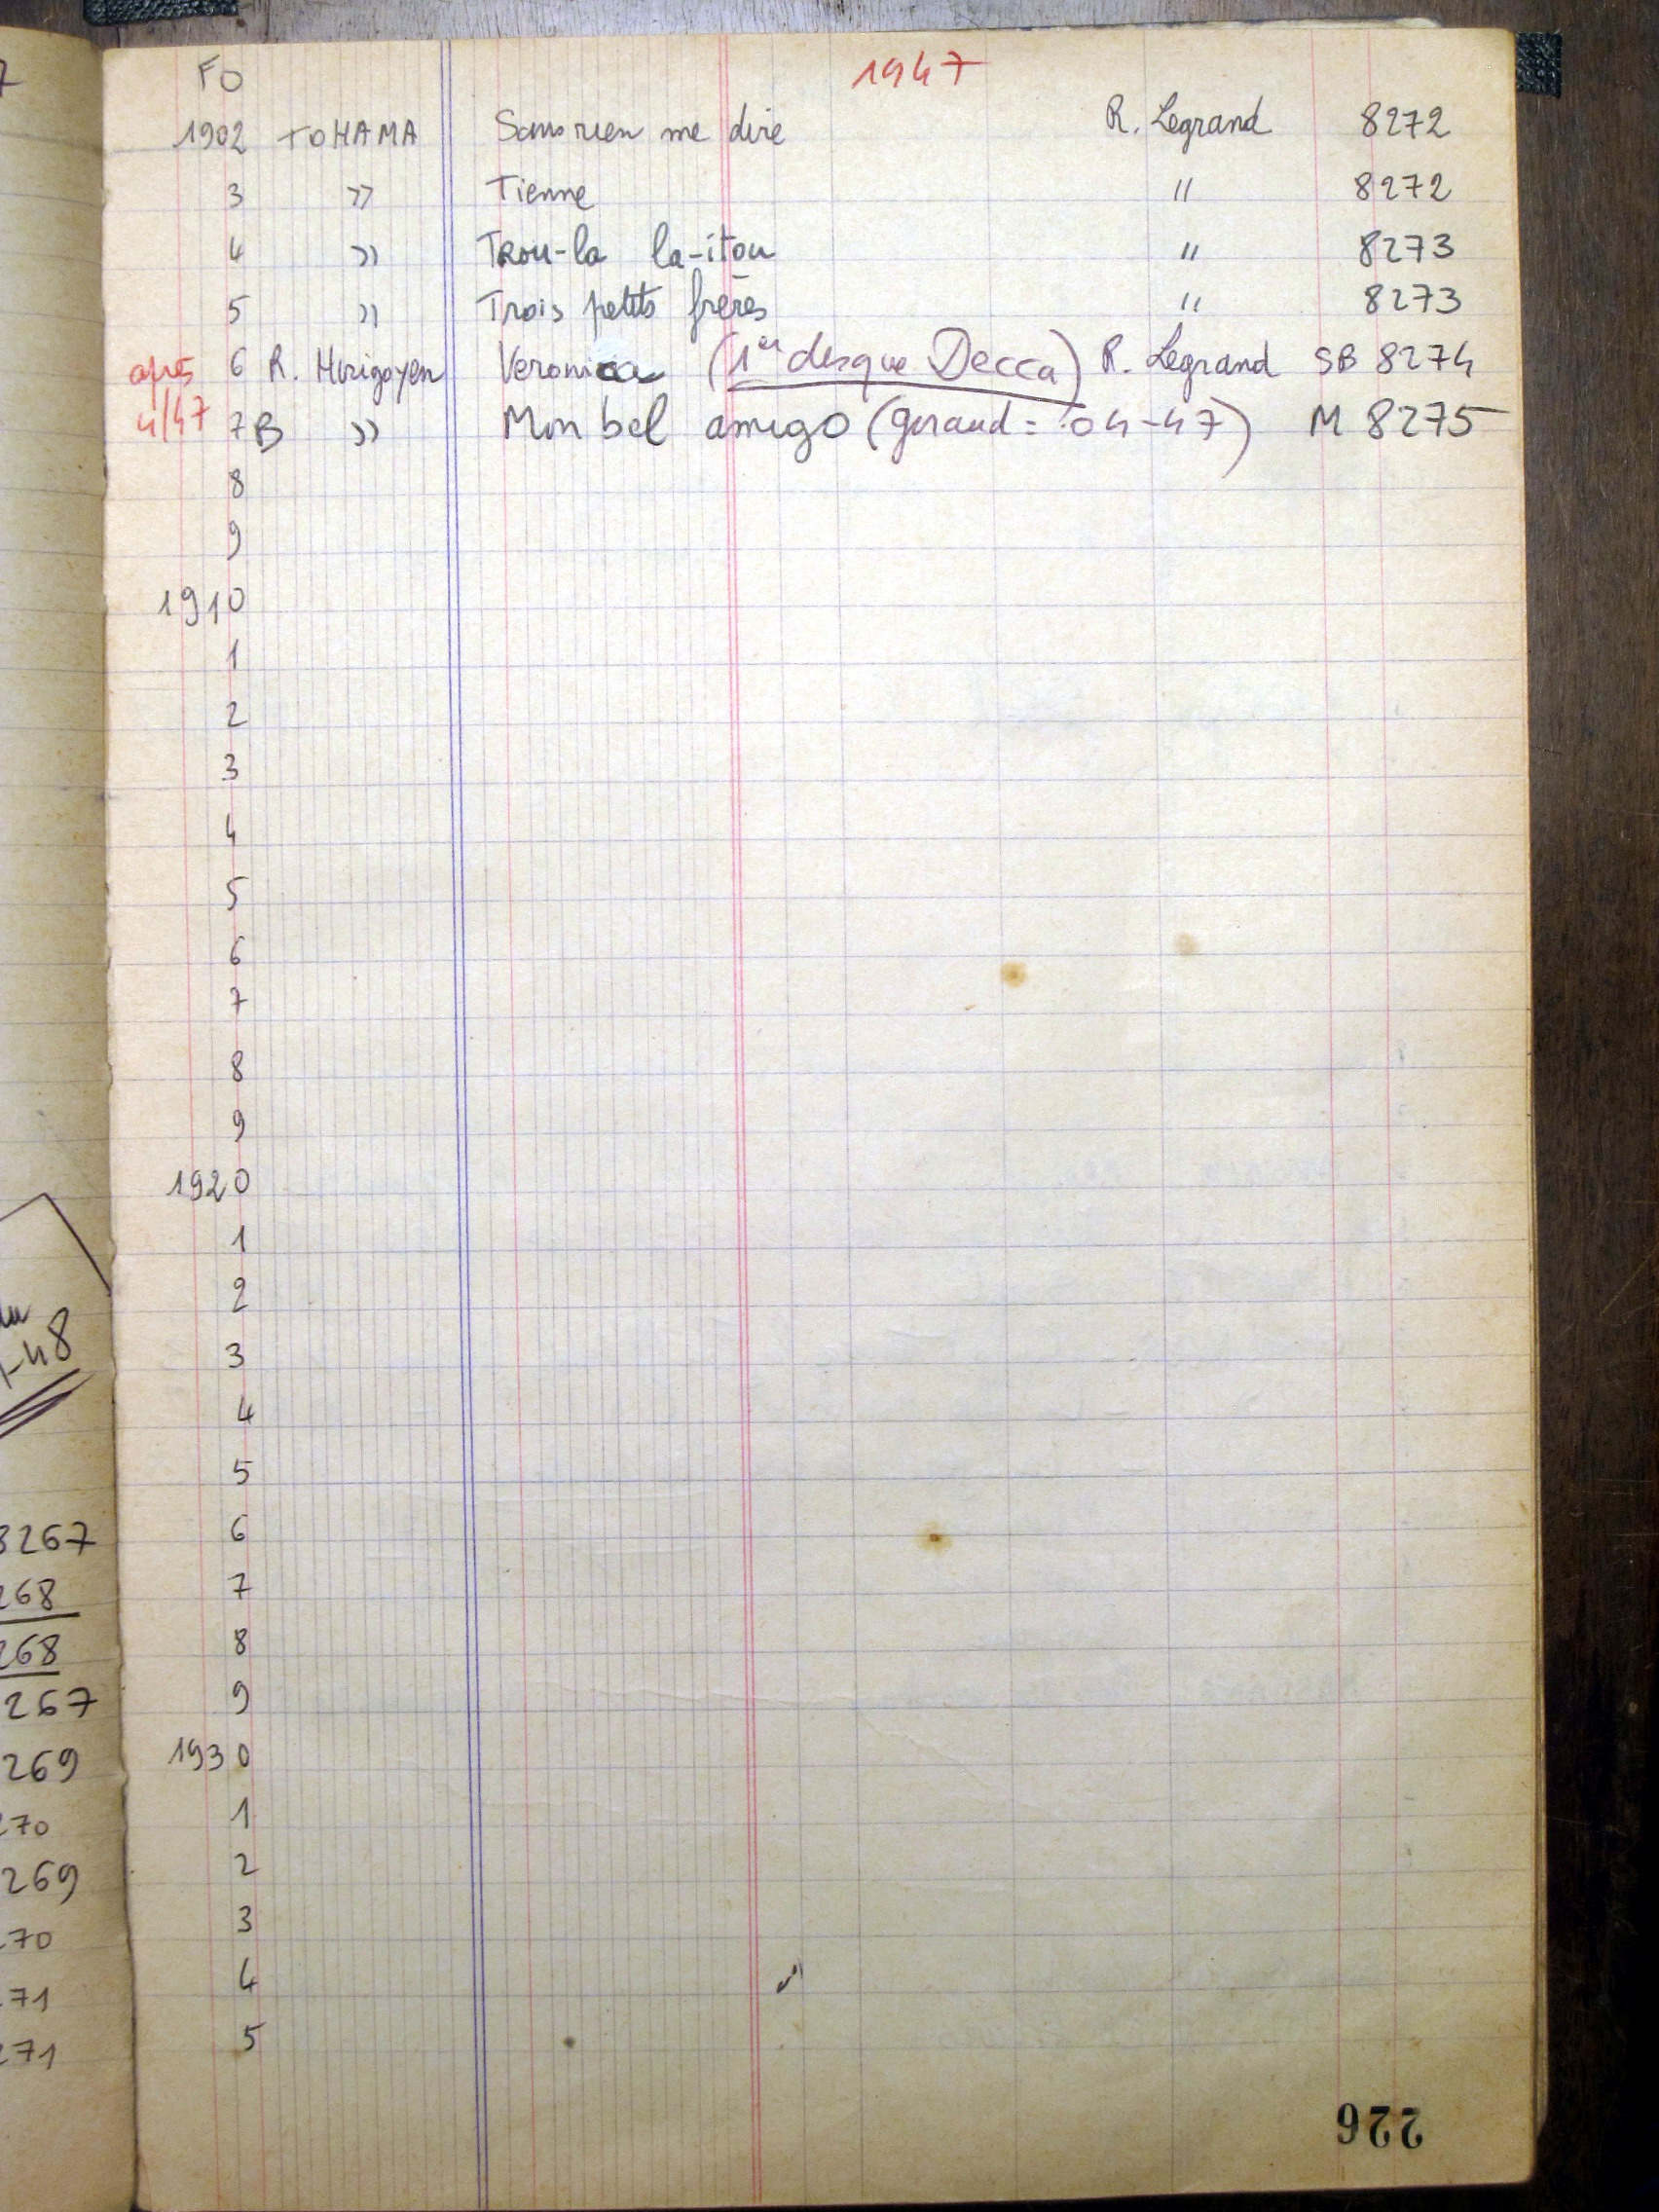 FO 1947
1902 TOHAMA Sans rien me dire R. Legrand 8272
3 " Tienne " 8272
4 " Trou-la la-itou " 8273
5 " Trois petits frères " 8273
après 6 R. Hirigoyen Veronica (1er disque Decca) R. Legrand SB 8274
4/47 7B " Mon bel amigo (géraud = 04-47) M 8275
8
9
1910
1
2
3
4
5
6
7
8
9
1920
1
2
3
4
5
6
7
8
9
1930
1
2
3
4
5
226
7
-48
8267
268
268
267
269
270
269
270
271
271